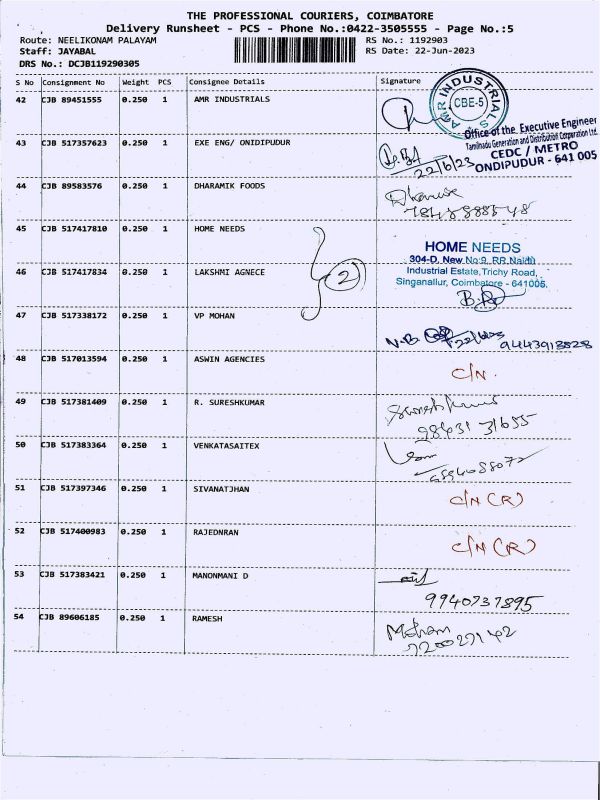 THE PROFESSIONAL COURIERS, COIMBATORE
Delivery Runsheet - PCS - Phone No.:0422-3505555 - Page No.:5
Route: NEELIKONAM PALAYAM
RS No.: 1192903
Staff: JAYABAL
RS Date: 22-Jun-2023
DRS No.: DCJB119290305
S No Consignment No Weight PCS Consignee Details Signature
42 CJB 89451555 0.250 1 AMR INDUSTRIALS
AMR INDUSTRIALS
CBE-5
43 CJB 517357623 0.250 1 EXE ENG/ ONIDIPUDUR
Office of the Executive Engineer
Tamilnadu Generation and Distribution Corporation Ltd.
CEDC / METRO
ONDIPUDUR - 641 005
22/6/23
44 CJB 89583576 0.250 1 DHARAMIK FOODS
45 CJB 517417810 0.250 1 HOME NEEDS
HOME NEEDS
304-D, New No:9, RR Naidu
Industrial Estate,Trichy Road,
Singanallur, Coimbatore - 641005.
46 CJB 517417834 0.250 1 LAKSHMI AGNECE
2
47 CJB 517338172 0.250 1 VP MOHAN
9443913828
48 CJB 517013594 0.250 1 ASWIN AGENCIES
C/N.
49 CJB 517381409 0.250 1 R. SURESHKUMAR
98431 31655
50 CJB 517383364 0.250 1 VENKATASAITEX
51 CJB 517397346 0.250 1 SIVANATJHAN
C/N (R)
52 CJB 517400983 0.250 1 RAJEDNRAN
C/N (R)
53 CJB 517383421 0.250 1 MANONMANI D
9940737895
54 CJB 89606185 0.250 1 RAMESH
Mohan
7200271142